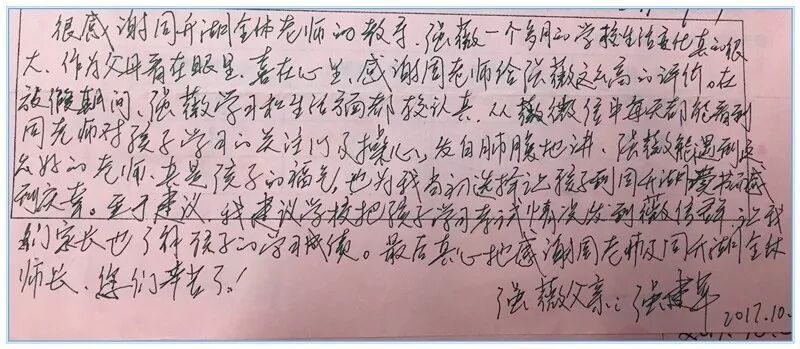 很感谢同升湖全体老师的教导，强薇一个多月的学校生活变化真的很
大，作为父母看在眼里，喜在心里，感谢周老师给强薇这么高的评价。在
放假期间，强薇学习和生活方面都较认真，从微信中每天都能看到
周老师对孩子学习的关注以及操心，发自肺腑地讲，强薇能遇到这
么好的老师，真是孩子的福气，也为我当初选择让孩子到同升湖读书而感
到庆幸。至于建议，我建议学校把孩子学习考试情况发到微信群，让我
们家长也了解孩子的学习成绩。最后真心地感谢周老师及同升湖全体
师长，您们辛苦了！
强薇父亲：强建军
2017.10.